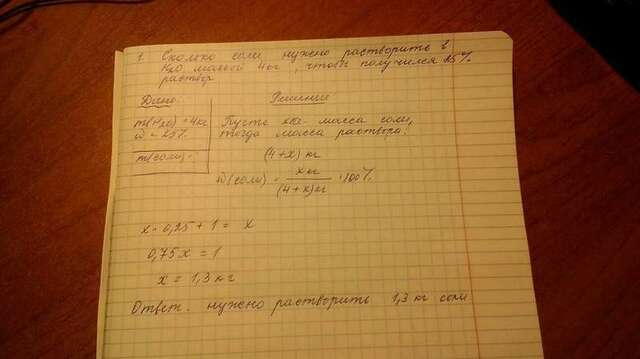 1. Сколько соли нужно растворить в
H₂O массой 4 кг, чтобы получился 25%
раствор
Дано
Решение
m(H₂O) = 4кг
ω = 25%
m(соли) - ?
Пусть x кг масса соли,
тогда масса раствора:
(4+x) кг
ω(соли) = x кг / (4+x) кг · 100%
x · 0,25 + 1 = x
0,75x = 1
x = 1,3 кг
Ответ. нужно растворить 1,3 кг соли